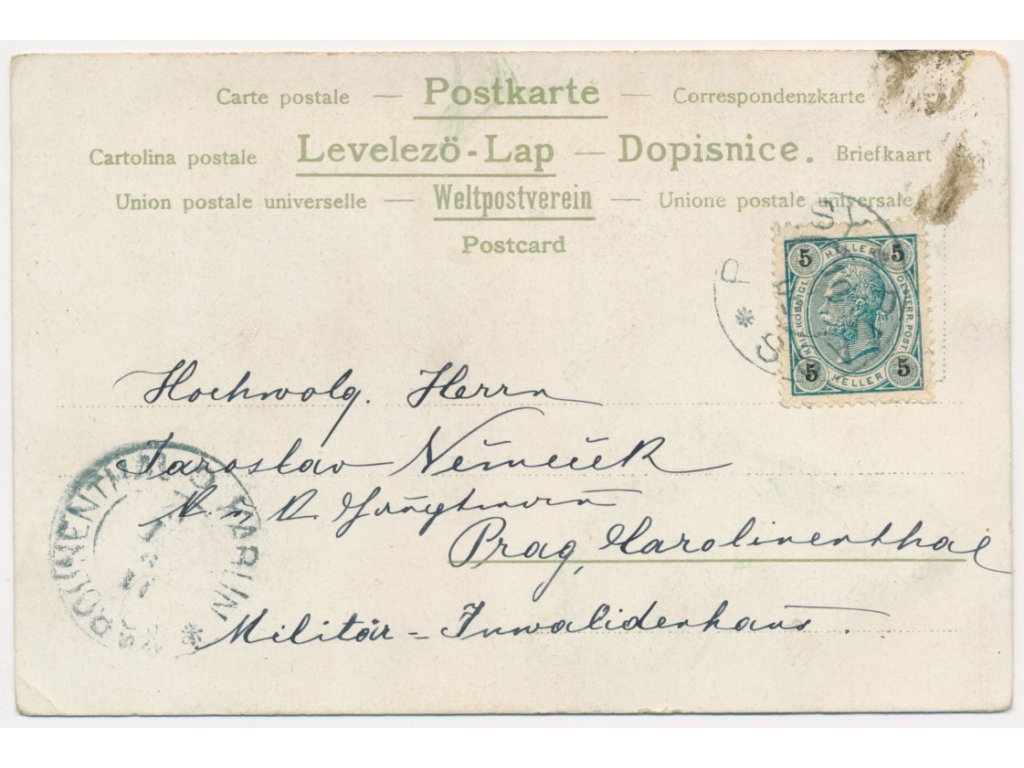 Carte postale — Postkarte — Correspondenzkarte
Cartolina postale Levelező-Lap — Dopisnice. Briefkaart
Union postale universelle — Weltpostverein — Unione postale universale
Postcard
5 HELLER 5
KAIS. KOENIGL. OESTERR. POST
5 HELLER 5
Hochwolg. Herrn
Jaroslav Němeček
K. u. K.
Prag, Karolinenthal
Militär-Invalidenhaus.
KAROLINENTHAL KARLÍN